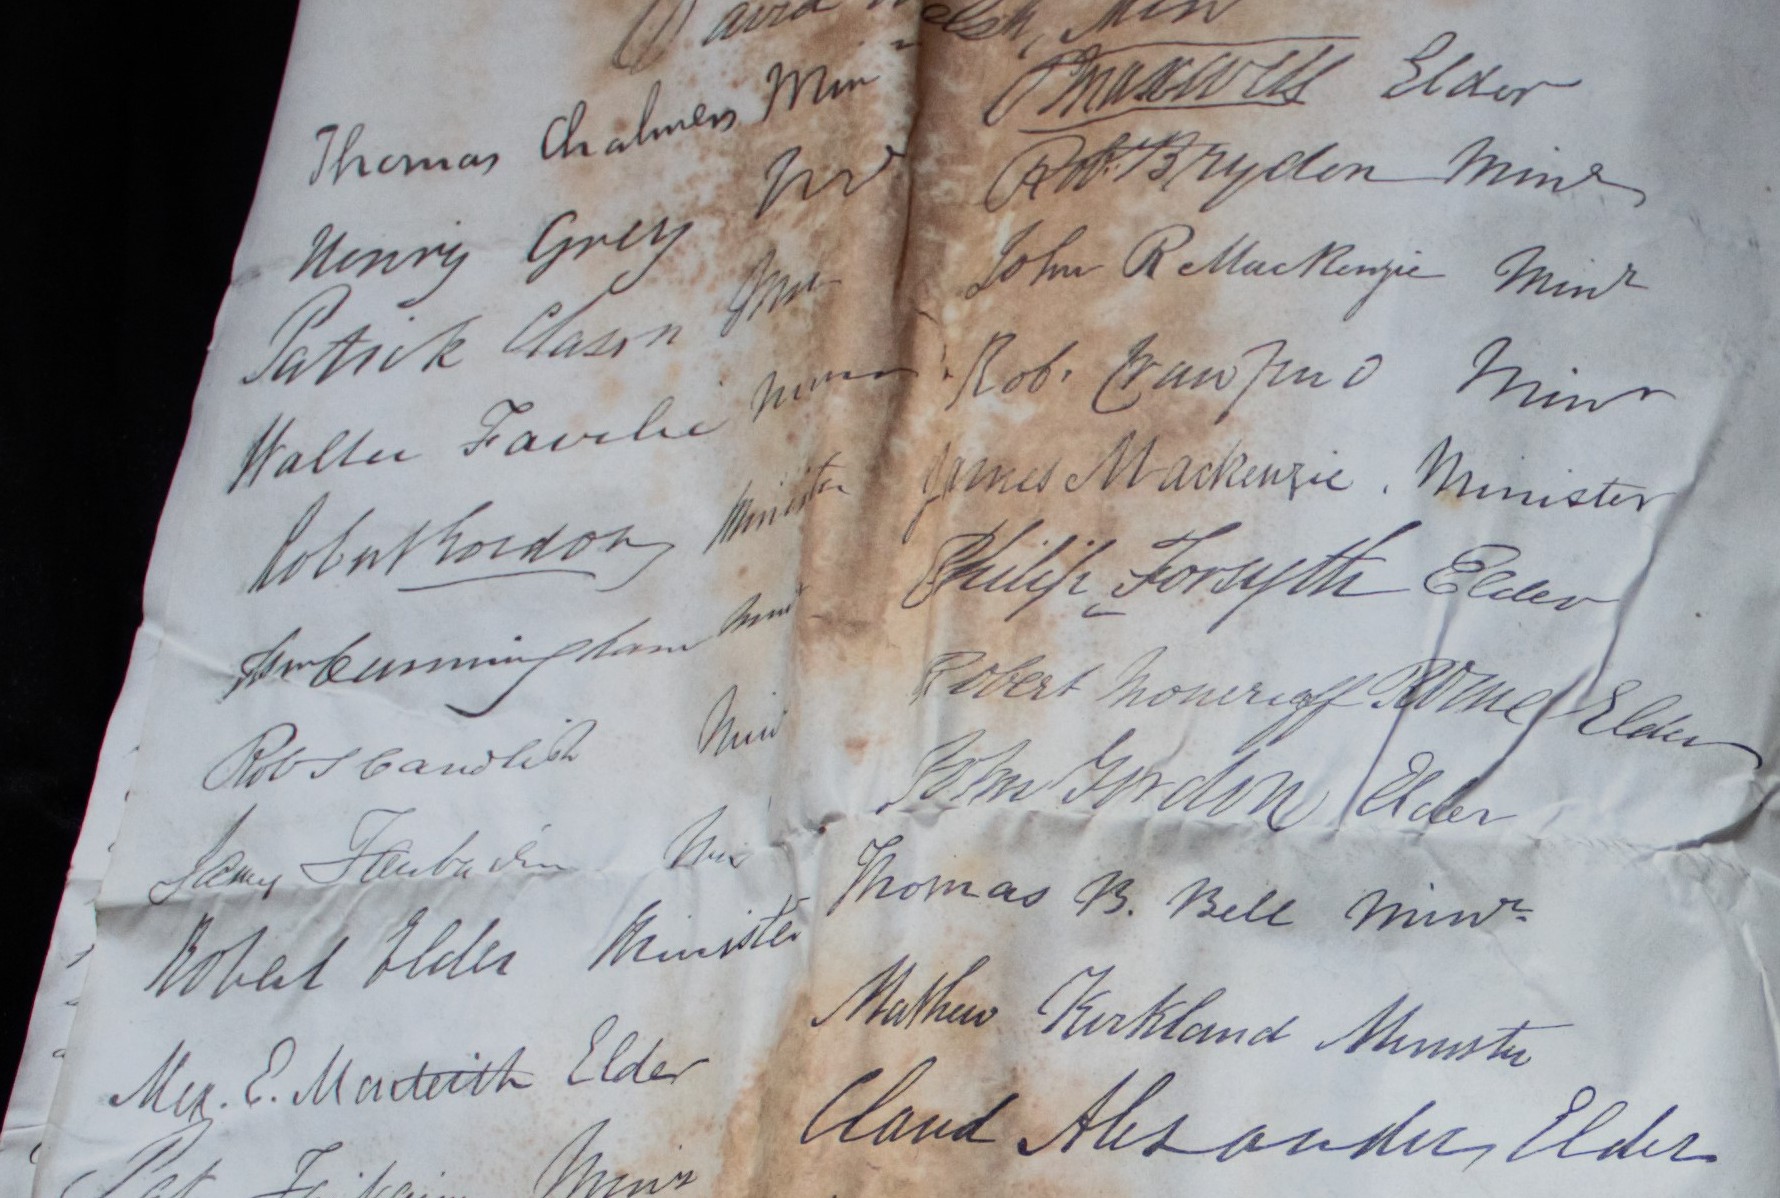 David Welsh, Min
Thomas Chalmers Min
Henry Grey Mr
Patrick Clason Min
Walter Fairlie
Robert Gordon Minister
Wm Cunningham Minr
Robt S Candlish Min
James Min
Robert Elder Minister
Alex. E. Monteith Elder
Pat. Fairbairn Minr
Maxwell Elder
Rob. Brydon Minr
John R MacKenzie Minr
Rob. Crawford Minr
James Mackenzie. Minister
Philip Forsyth Elder
Robert Moncrieff Elder
John Gordon Elder
Thomas B. Bell Minr
Mathew Kirkland Minister
Claud Alexander, Elder